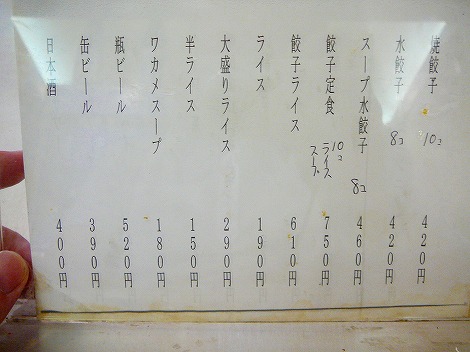 焼餃子 10コ 420円
水餃子 8コ 420円
スープ水餃子 8コ 460円
餃子定食 10コ ライス スープ 750円
餃子ライス 610円
ライス 190円
大盛りライス 290円
半ライス 150円
ワカメスープ 180円
瓶ビール 520円
缶ビール 390円
日本酒 400円